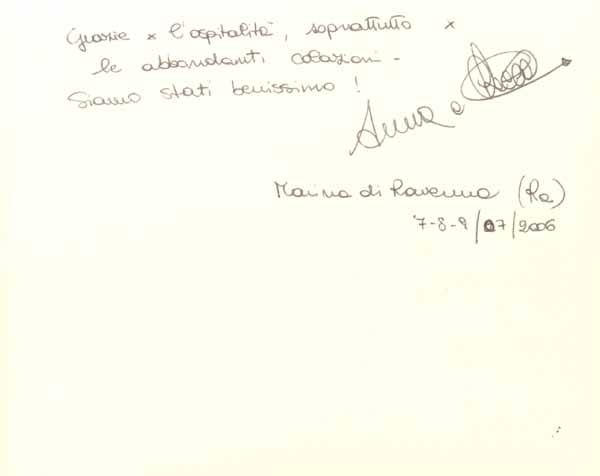 Grazie x l'ospitalità, soprattutto x
le abbondanti colazioni -
Siamo stati benissimo !
Anna e
Marina di Ravenna (Ra)
7-8-9/07/2006